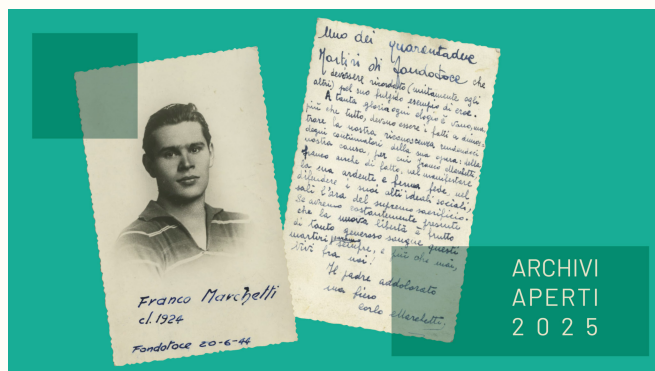 Franco Marchetti
cl. 1924
Fondotoce 20-6-44
Uno dei quarantadue
Martiri di Fondotoce che
devesere ricordato (unitamente agli
altri) pel suo fulgido esempio di eroe.
A tanta gloria ogni elogio è vano, ma,
più che tutto, devono essere i fatti a dimos_
trare la nostra riconoscenza rendendoci
degni continuatori della sua opera: della
nostra causa, per cui Franco Marchetti
franco anche di fatto, nel manifestare
la sua ardente e ferma fede, nel
difendere i suoi alti ideali sociali,
salì l'ara del supremo sacrificio.
Se avremo costantemente presente
che la nuova libertà è frutto
di tanto generoso sangue questi
martiri sempre, e più che mai,
vivi fra noi!
Il padre addolorato
ma fiero
Carlo Marchetti
ARCHIVI
APERTI
2025